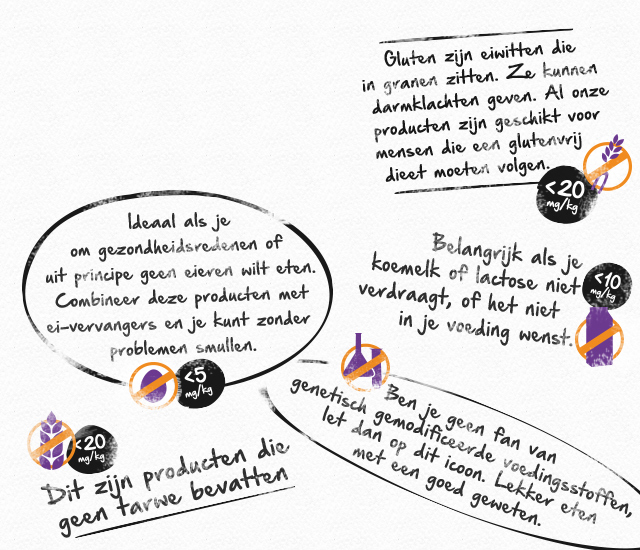 Gluten zijn eiwitten die
in granen zitten. Ze kunnen
darmklachten geven. Al onze
producten zijn geschikt voor
mensen die een glutenvrij
dieet moeten volgen.
<20
mg/kg
Ideaal als je
om gezondheidsredenen of
uit principe geen eieren wilt eten.
Combineer deze producten met
ei-vervangers en je kunt zonder
problemen smullen.
<5
mg/kg
Belangrijk als je
koemelk of lactose niet
verdraagt, of het niet
in je voeding wenst.
<10
mg/kg
Ben je geen fan van
genetisch gemodificeerde voedingsstoffen,
let dan op dit icoon. Lekker eten
met een goed geweten.
<20
mg/kg
Dit zijn producten die
geen tarwe bevatten